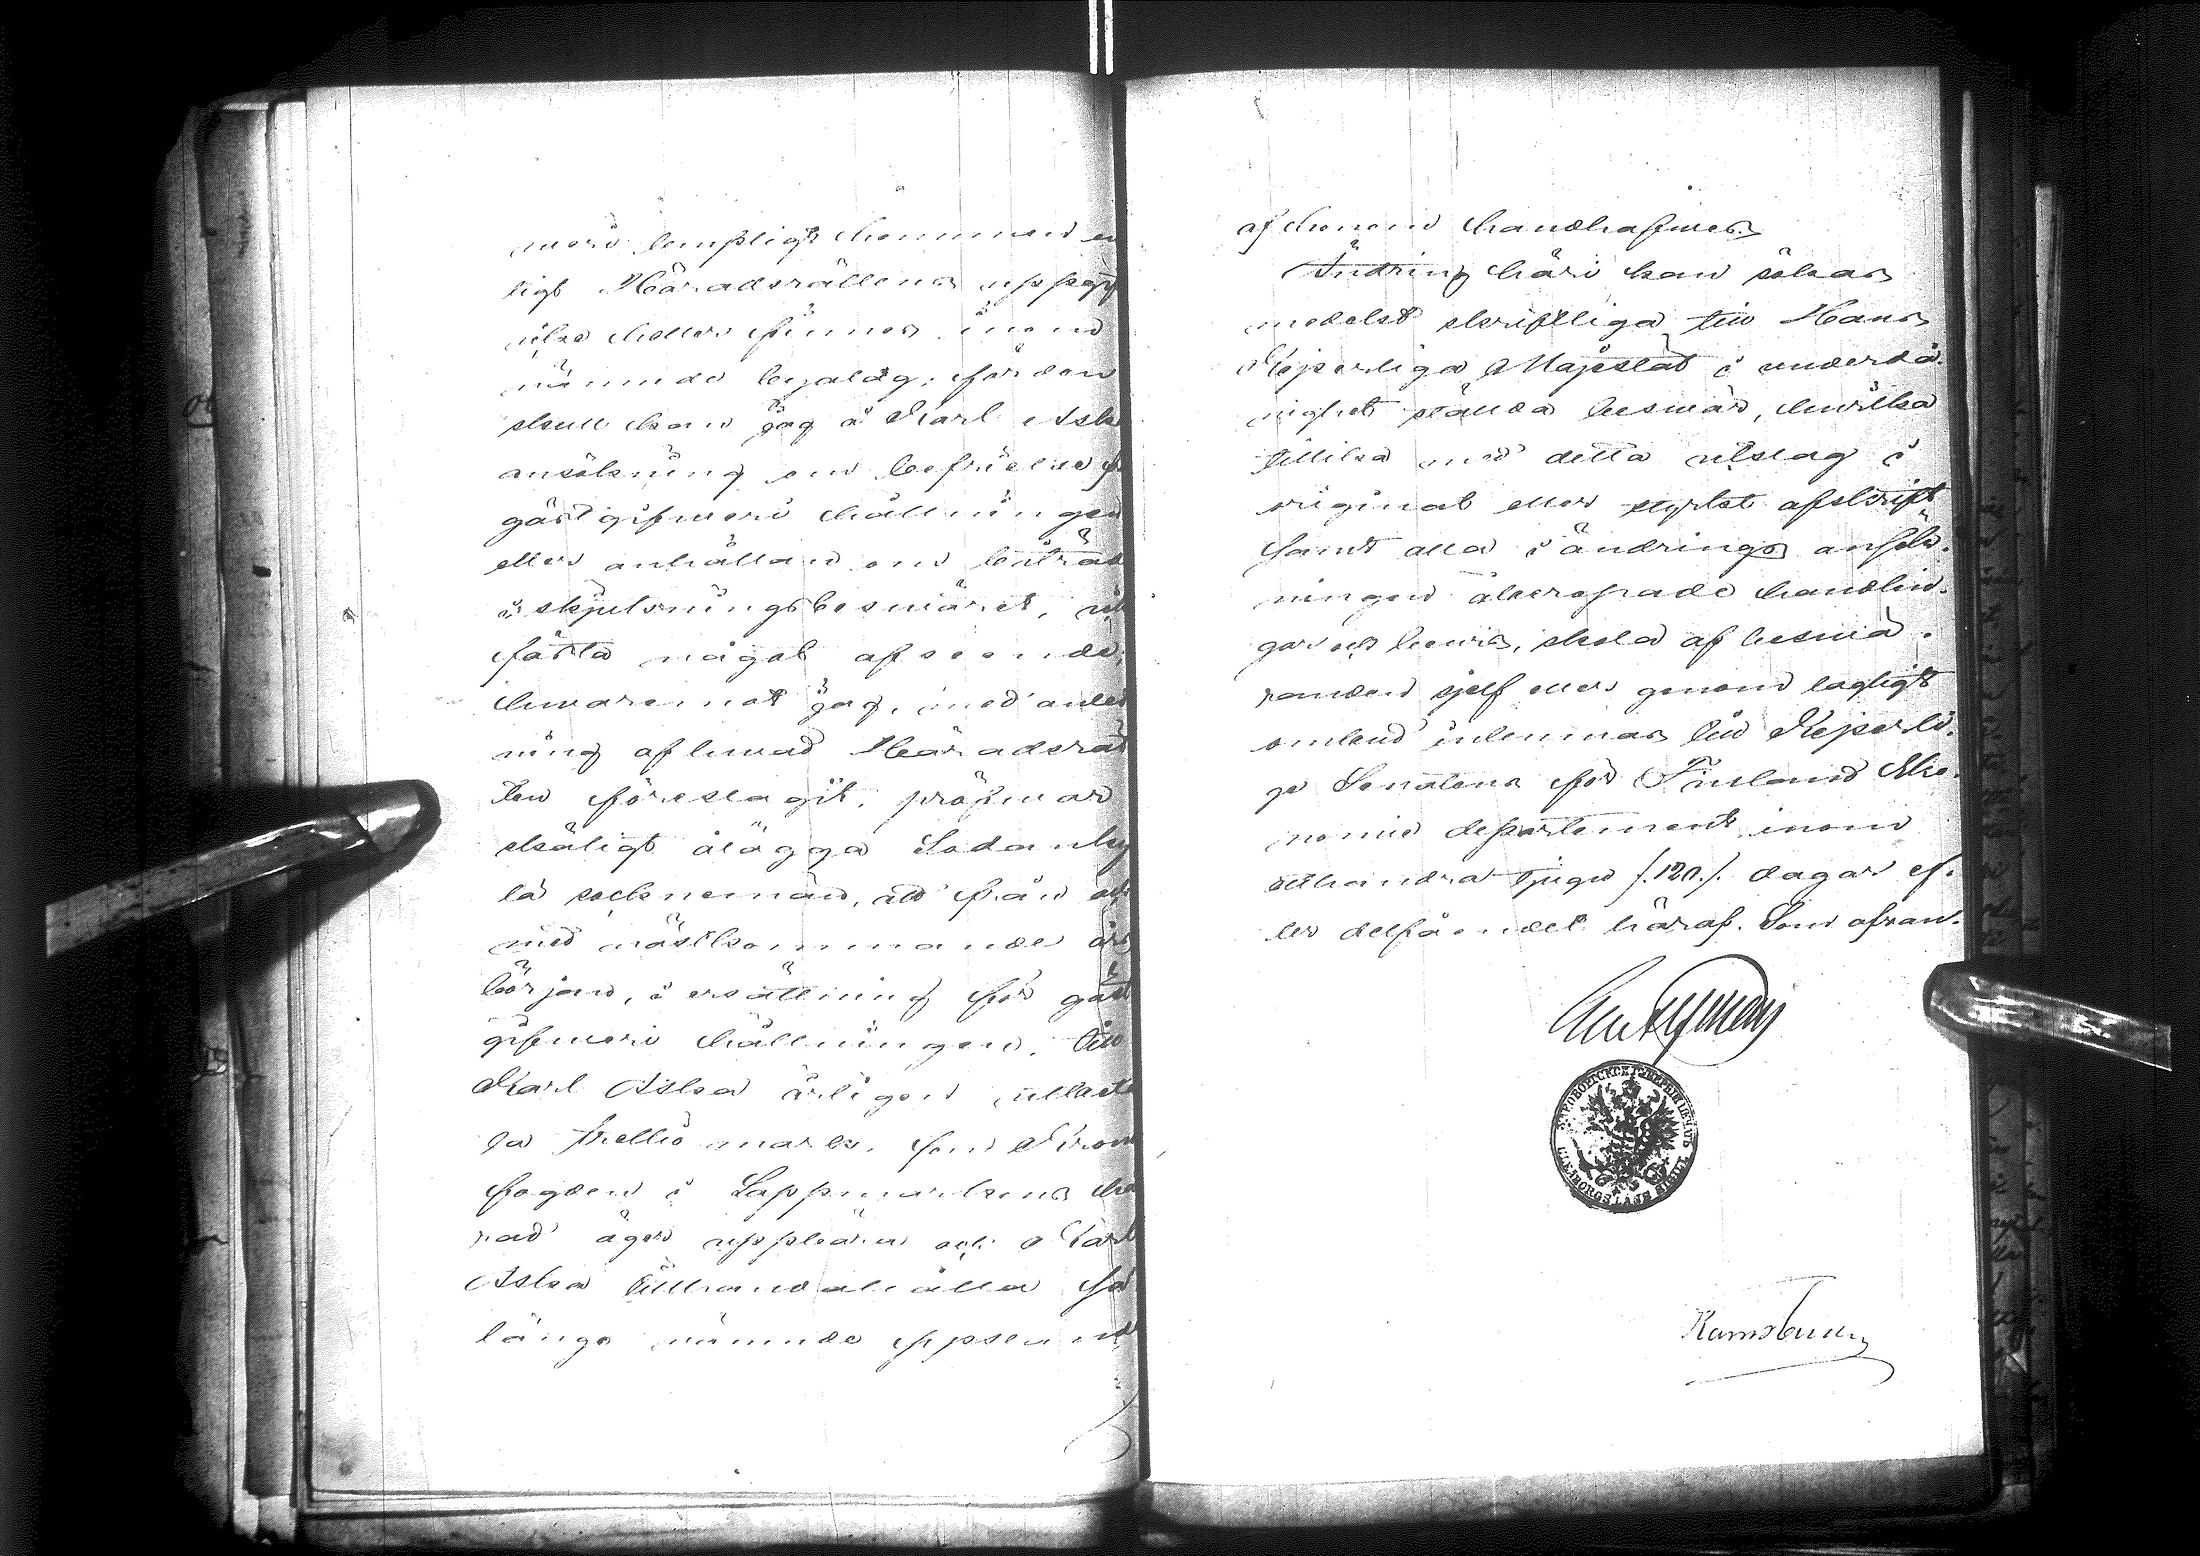 meri lempligt hemman en
ligt Häradsrättens uppgif
velse heller finnes inom
nämnde byalag; för den
skull kan jag å Karl Aska
ansökning om befrielse f
gästgifveri hållningen
eller anhållan om biträde
i skjutsningsbesväret, ej
fästa något afseende;
hvaremot jag, med anled
ning af hvad Häradsrät
ten föreslagit, pröfvar
skäligt ålägga Sodanky
lä sockenemän, att från och
med nästkommande års
början, i ersättning för gäst
gifveri hållningen, till
Karl Aska årligen utbeta
la trettio mark, som Krono
fogden i Lappmarkens hä
rad äger uppbära och Karl
Aska tillhandahålla så
länge nämnde
af honom handhafves.
Ändring häri kan sökas
medelst skriftliga till Hans
Kejserliga Majestät i underdå-
nighet ställda besvär, hvilka
tillika med detta utslag i
original eller styrkt afskrift,
samt alla i ändrings ansök-
ningen åberopade handlin-
gar och bevis, skola af besvä-
randen sjelf eller genom lagligt
ombud inlemnas till Kejserli-
ga Senatens för Finland Eko-
nomie departement inom
etthundra tjugu /.120./ dagar ef-
ter delfåendet häraf. Som ofvan.
УЛЕОБОРГСКОЙ ГУБЕРНІИ ПЕЧАТЬ
ULEABORGS LÄNS SIGILL